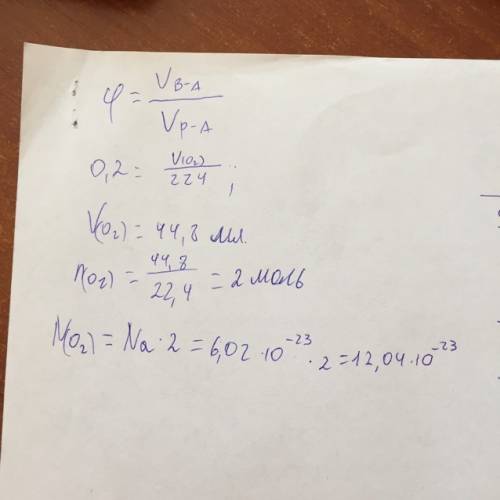 φ = V в-а / V р-а
0,2 = V(O₂) / 224 ;
V(O₂) = 44,8 мл.
n(O₂) = 44,8 / 22,4 = 2 моль
N(O₂) = Na · 2 = 6,02 · 10⁻²³ · 2 = 12,04 · 10⁻²³